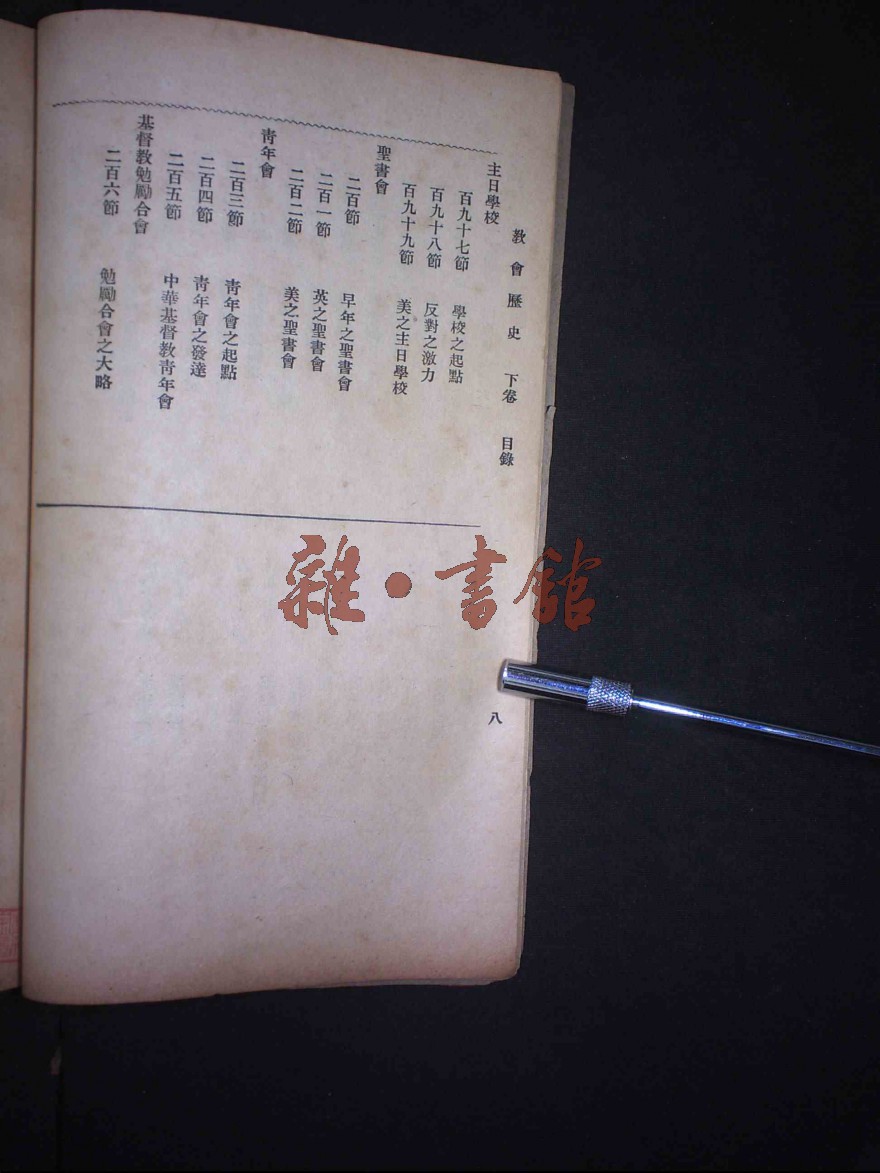 教會歷史 下卷 目錄
主日學校
百九十七節 學校之起點
百九十八節 反對之激力
百九十九節 美之主日學校
聖書會
二百節 早年之聖書會
二百一節 英之聖書會
二百二節 美之聖書會
青年會
二百三節 青年會之起點
二百四節 青年會之發達
二百五節 中華基督教青年會
基督教勉勵合會
二百六節 勉勵合會之大略
八
雜·書館